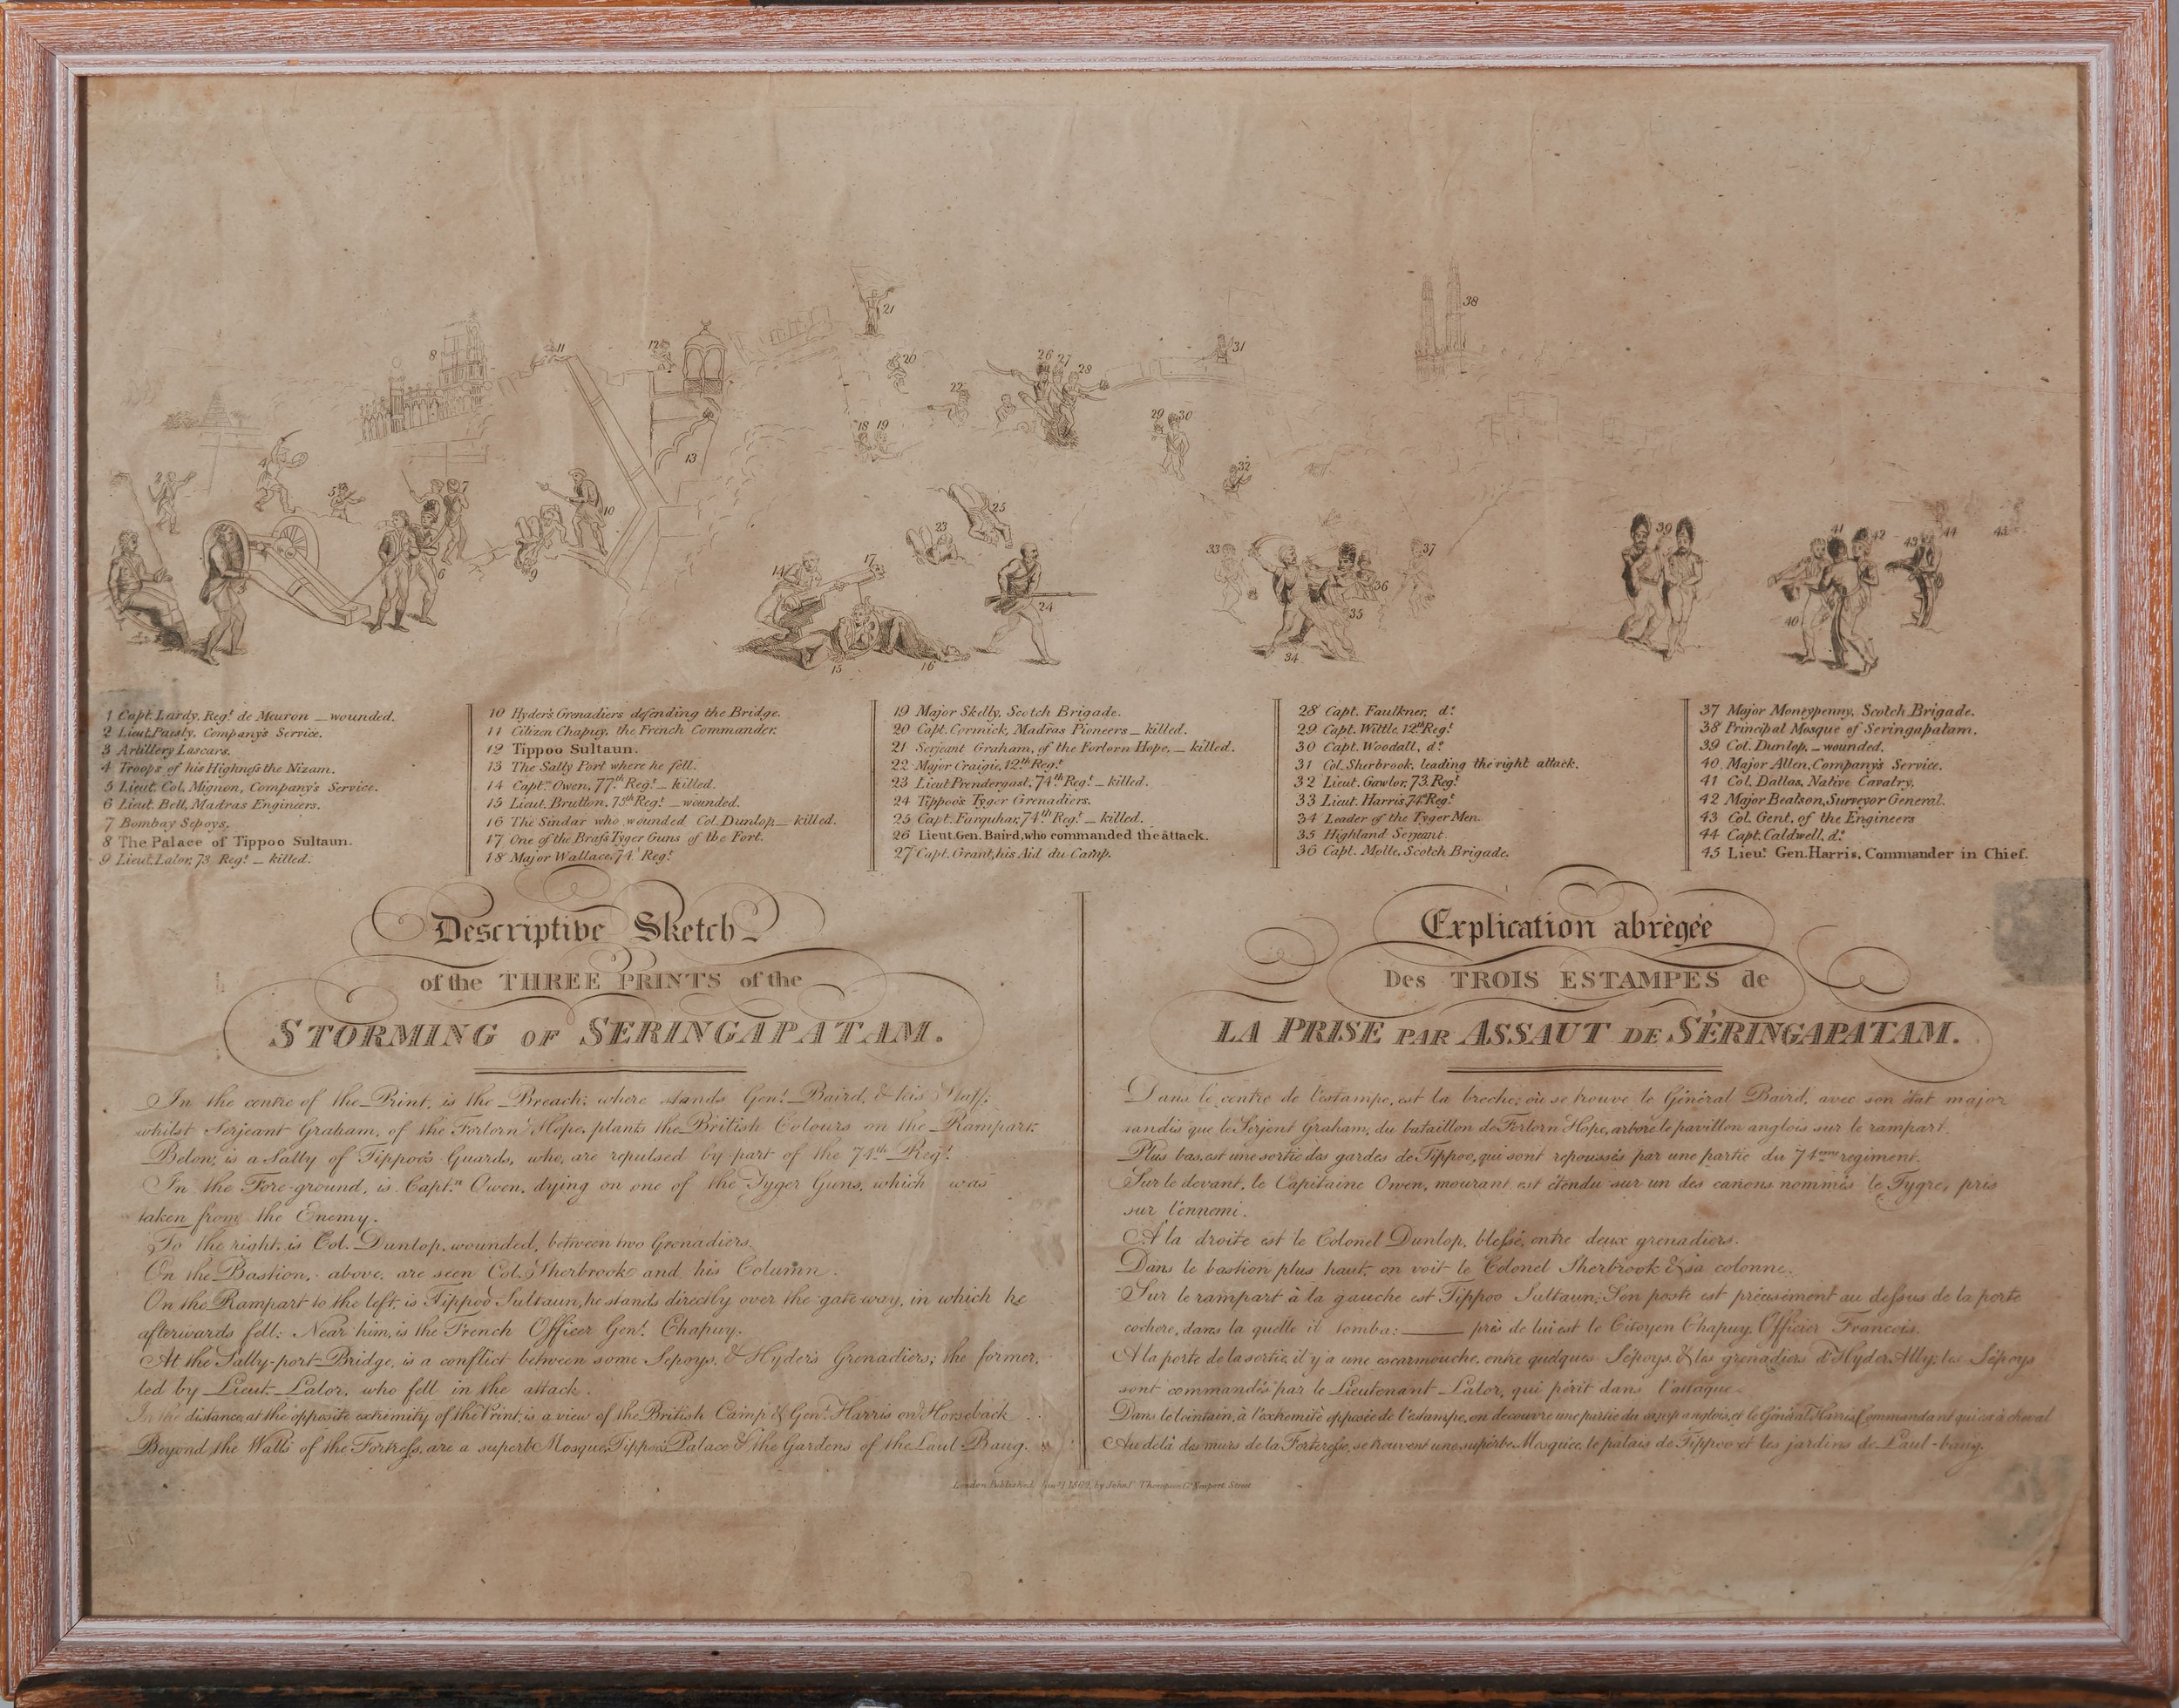 1 Capt. Lardy, Regt. de Meuron _ wounded.
2 Lieut. Paisly, Company's Service.
3 Artillery Lascars.
4 Troops of his Highness the Nizam.
5 Lieut. Col. Mignon, Company's Service.
6 Lieut. Bell, Madras Engineers.
7 Bombay Sepoys.
8 The Palace of Tippoo Sultaun.
9 Lieut. Lalor, 73 Regt. _ killed.
10 Hyder's Grenadiers defending the Bridge.
11 Citizen Chapuy, the French Commander.
12 Tippoo Sultaun.
13 The Sally Port where he fell.
14 Captn. Owen, 77th Regt. _ killed.
15 Lieut. Brutton, 75th Regt. _ wounded.
16 The Sirdar who wounded Col. Dunlop _ killed.
17 One of the Brass Tyger Guns of the Fort.
18 Major Wallace, 74 Regt.
19 Major Skelly, Scotch Brigade.
20 Capt. Cormick, Madras Pioneers _ killed.
21 Serjeant Graham, of the Forlorn Hope, _ killed.
22 Major Craigie, 12th Regt.
23 Lieut Prendergast, 74th Regt. _ killed.
24 Tippoo's Tyger Grenadiers.
25 Capt. Farquhar, 74th Regt. _ killed.
26 Lieut. Gen. Baird, who commanded the attack.
27 Capt. Grant, his Aid du Camp.
28 Capt. Faulkner, do.
29 Capt. Wittle, 12th Regt.
30 Capt. Woodall, do.
31 Col. Sherbrook, leading the right attack.
32 Lieut. Gawlor, 73. Regt.
33 Lieut. Harris 74th Regt.
34 Leader of the Tyger Men.
35 Highland Serjeant.
36 Capt. Molle, Scotch Brigade.
37 Major Moneypenny, Scotch Brigade.
38 Principal Mosque of Seringapatam.
39 Col. Dunlop, _ wounded.
40 Major Allen, Company's Service.
41 Col. Dallas, Native Cavalry.
42 Major Beatson, Surveyor General.
43 Col. Gent, of the Engineers
44 Capt. Caldwell, do.
45 Lieut. Gen. Harris, Commander in Chief.
Descriptive Sketch
of the THREE PRINTS of the
STORMING OF SERINGAPATAM.
In the centre of the Print, is the Breach; where stands Genl. Baird, & his Staff;
whilst Serjeant Graham, of the Forlorn Hope, plants the British Colours on the Rampart.
Below, is a Sally of Tippoo's Guards, who, are repulsed by part of the 74th Regt.
In the Fore-ground, is Captn. Owen, dying on one of the Tyger Guns, which was
taken from the Enemy.
To the right, is Col. Dunlop, wounded, between two Grenadiers.
On the Bastion, above, are seen Col. Sherbrook and his Column.
On the Rampart to the left, is Tippoo Sultaun, he stands directly over the gateway, in which he
afterwards fell: Near him, is the French Officer Genl. Chapuy.
At the Sally-port Bridge, is a conflict between some Sepoys, & Hyder's Grenadiers; the former,
led by Lieut. Lalor, who fell in the attack.
In the distance, at the opposite extremity of the Print, is a view of the British Camp & Genl. Harris on Horseback
Beyond the Walls of the Fortress, are a superb Mosque, Tippoo's Palace & the Gardens of the Laul-Baug.
Explication abrègée
Des TROIS ESTAMPES de
LA PRISE PAR ASSAUT DE SÉRINGAPATAM.
Dans le centre de l'estampe, est la breche; où se trouve le Général Baird, avec son état major
tandis que le Serjent Graham, du bataillon de Forlorn Hope, arbore le pavillon anglois sur le rampart.
Plus bas, est une sortie des gardes de Tippoo, qui sont repoussés par une partie du 74eme regiment.
Sur le devant, le Capitaine Owen, mourant est étendu sur un des canons nommés le Tygre, pris
sur l'ennemi.
A la droite est le Colonel Dunlop, blessé, entre deux grenadiers.
Dans le bastion plus haut, on voit le Colonel Sherbrook & sa colonne.
Sur le rampart à la gauche est Tippoo Sultaun; Son poste est précisément au dessus de la porte
cochere, dans la quelle il tomba: ___ près de lui est le Citoyen Chapuy, Officier Francois.
A la porte de la sortie, il y'a une escarmouche, entre quelques Sépoys, & les grenadiers d'Hyder Ally; les Sépoys
sont commandés par le Lieutenant Lalor, qui périt dans l'attaque.
Dans le lointain, à l'extremité opposée de l'estampe, on decouvre une partie du camp anglois, et le Général Harris Commandant qui est à cheval
Au delà des murs de la Forteresse, se trouvent une superbe Mosquée, le palais de Tippoo et les jardins de Laul-baug.
London Published Jany. 1 1802, by John P. Thompson Gt. Newport Street